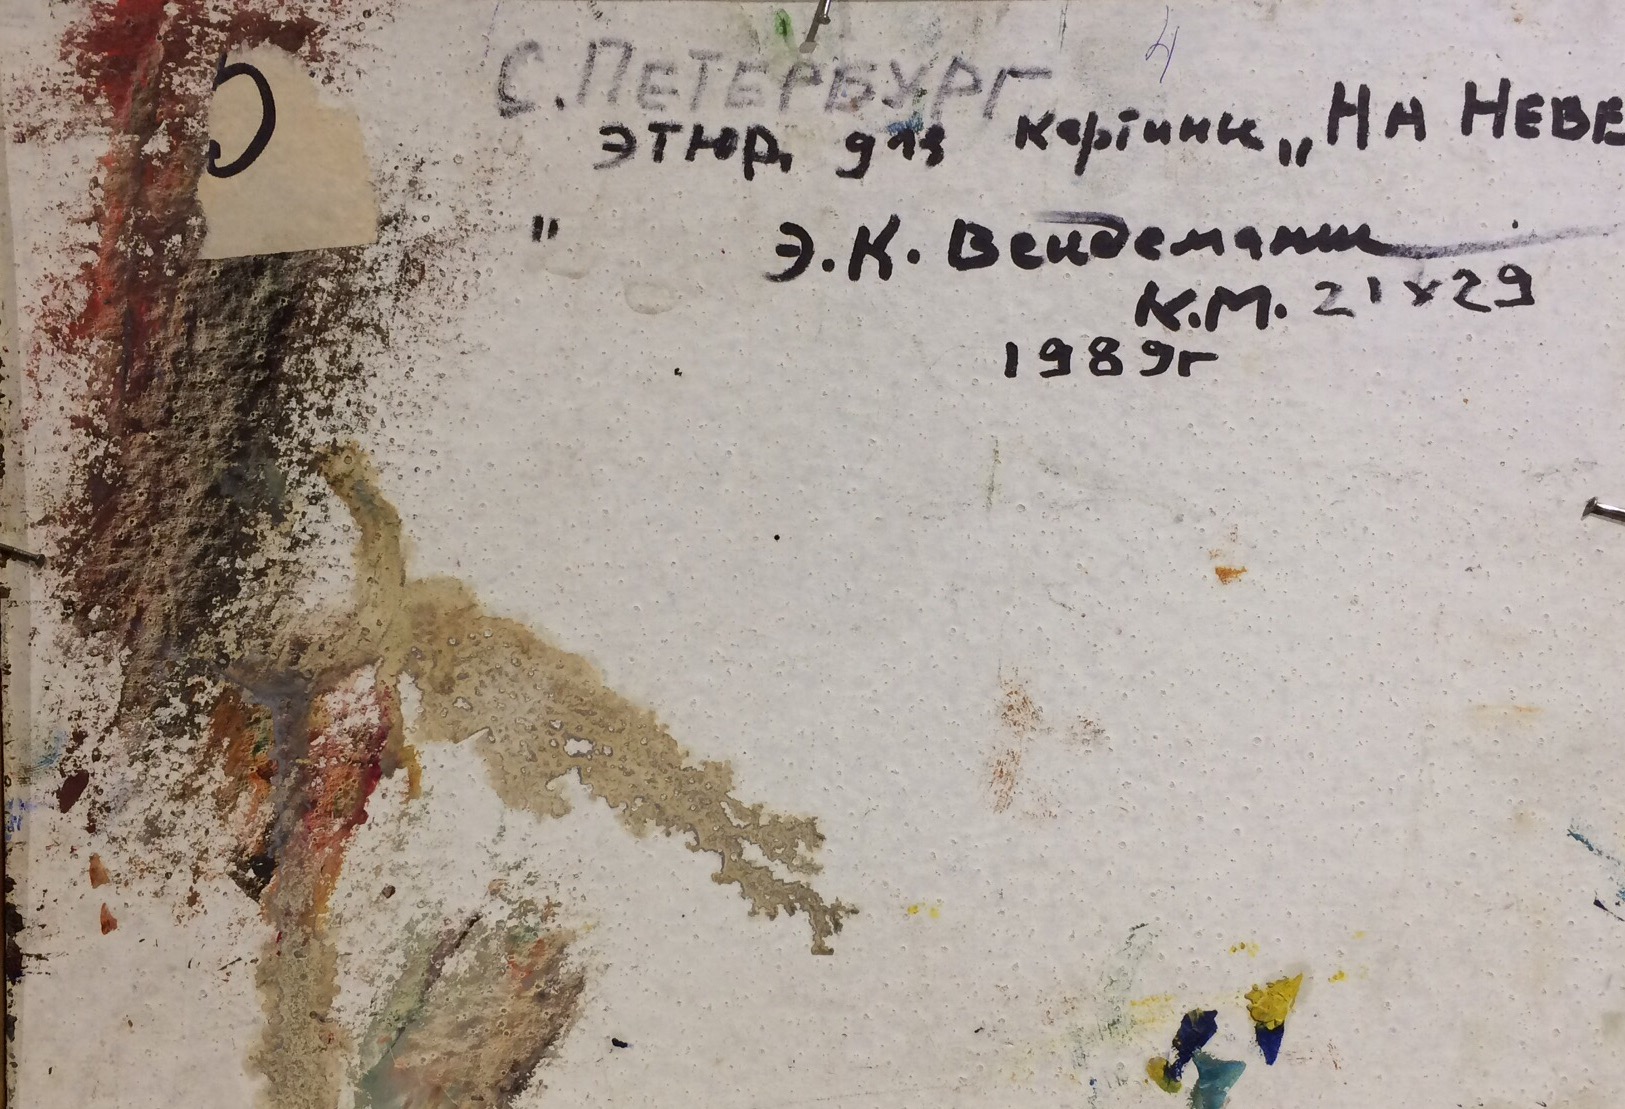 4
С. ПЕТЕРБУРГ
ЭТЮД для картины „НА НЕВЕ
"
Э.К. Вейдеманис
К.М. 21х29
1989г